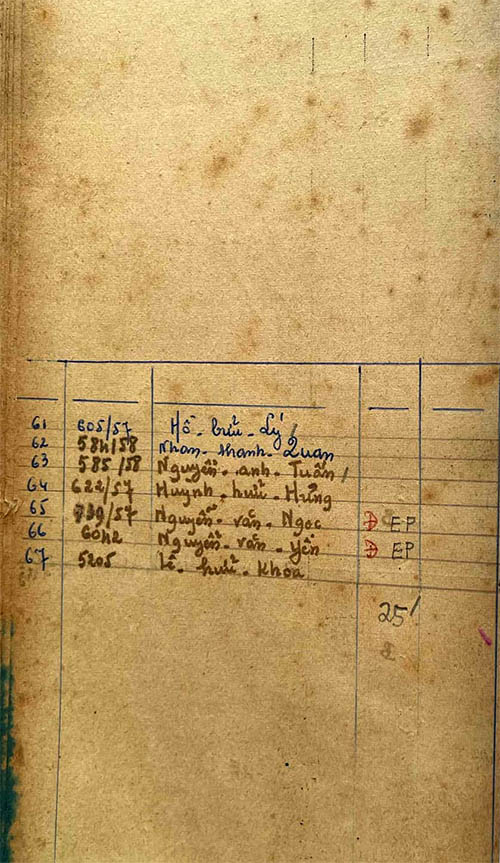 61 605/57 Hồ - bửu - Lý /
62 584/58 Nhan - thanh - Quan
63 585/58 Nguyễn - anh - Tuấn /
64 622/57 Huỳnh - hữu - Hưng
65 /57 Nguyễn - văn - Ngọc Đ EP
66 6042 Nguyễn - văn - Yên Đ EP
67 5205 Lê - hữu - Khoa
25/